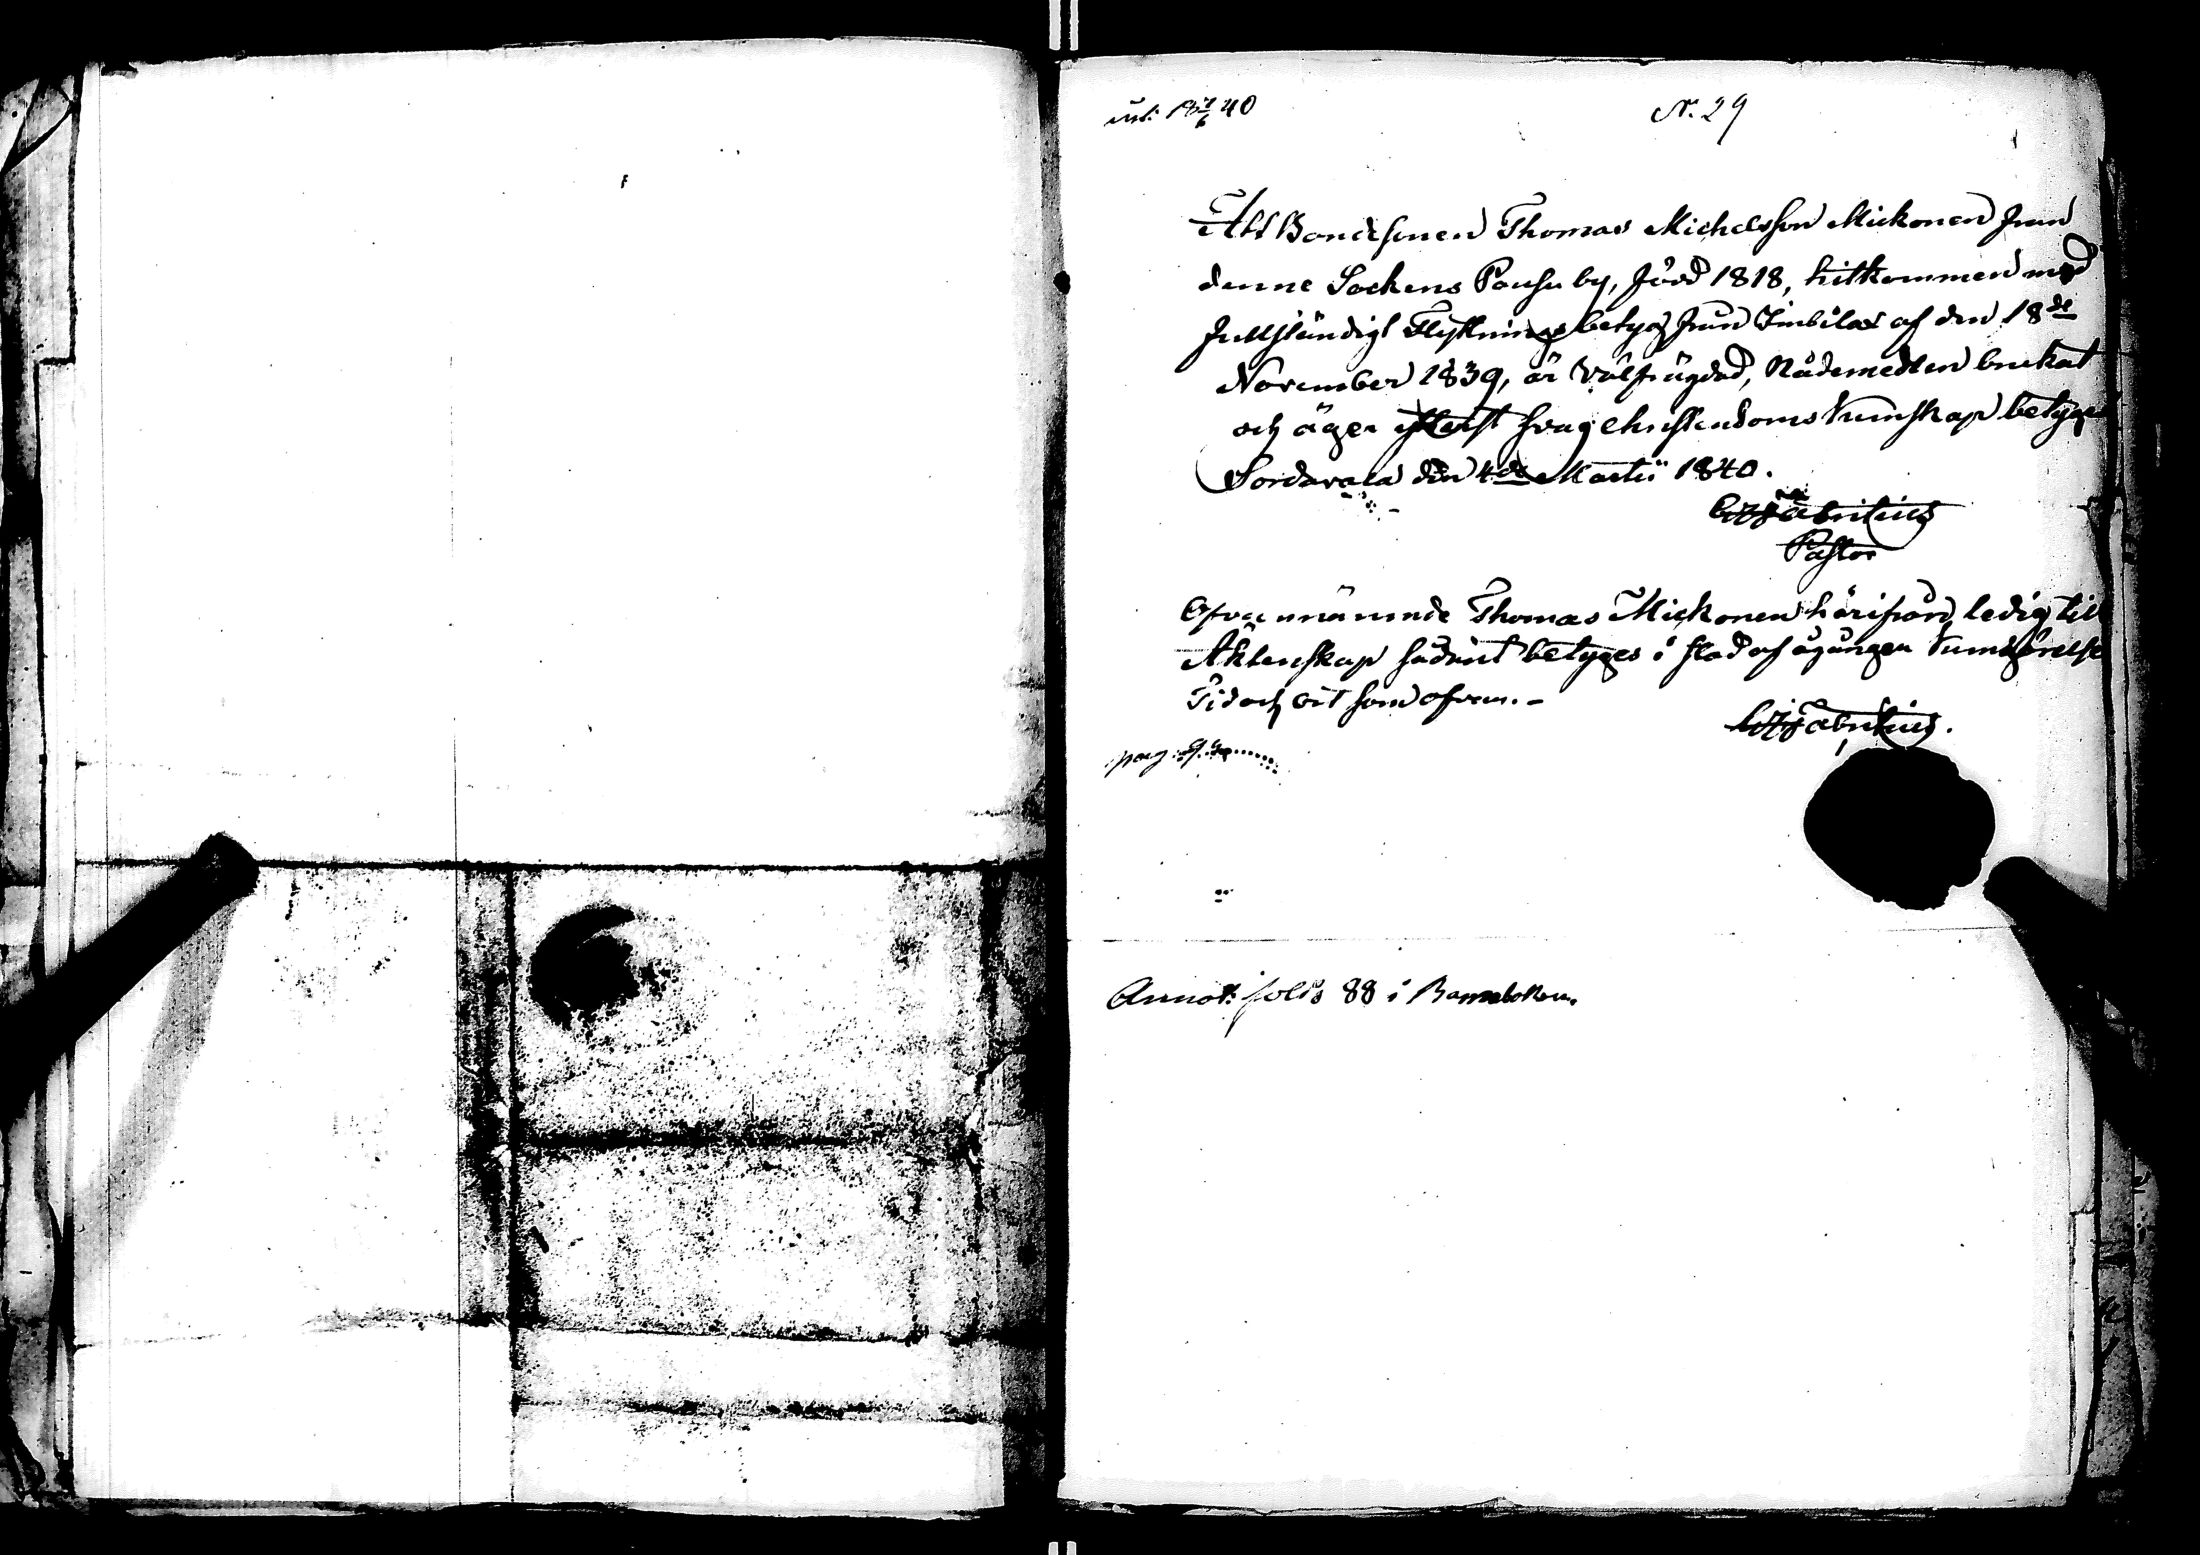 int: 18 7/6 40
N. 29
Att Bondesonen Thomas Michelsson Mickonen från
denne Sockens Pausu by, född 1818, hitkommen med
fullständigt Flyttnings betyg från Imbilax af den 18de
November 1839, är välfrägdad, Nådemedlen brukat
och äger ytterst svag christendoms kunskap betyges
Sordavala den 4de Martii 1840.
Fabritius
Pastor
Ofvannämnde Thomas Mickonen härifrån, ledig till
Äktenskap sådant betyges i stad af ågången kungörelse
Tid och ort som ofvan. -
Fabritius.
pag:
Annot: folio 88 i Barneboken.